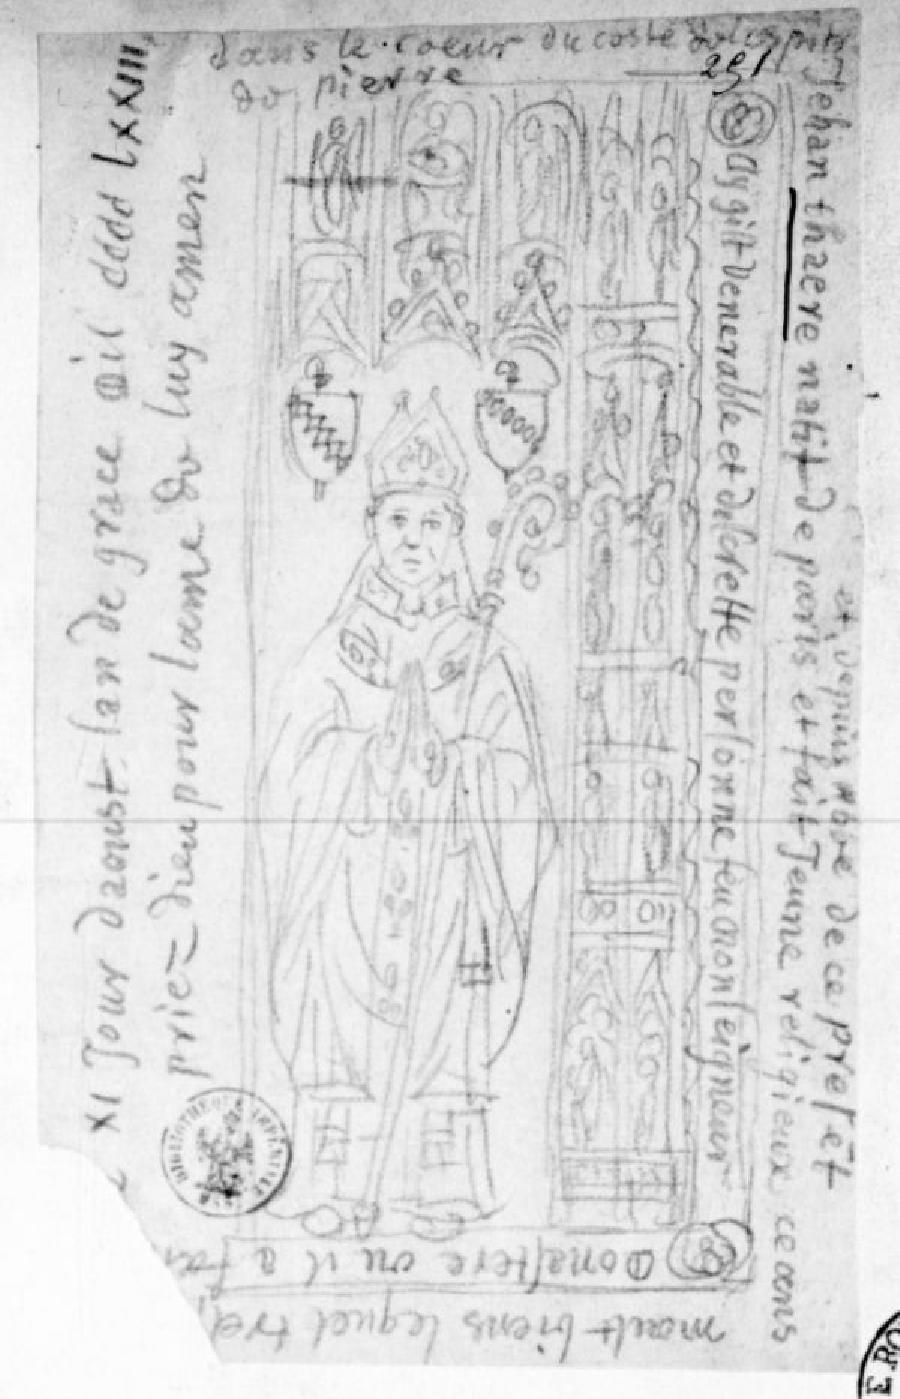 dans le coeur du costé
de pierre
291
Cy gist Venerable et discrette personne feu monseigneur
Jehan thaere natif de paris et fait Jeune religieux ceans
et depuis abbé de ce present
monstere ou il a fa
moult biens lequel tre
XI Jour daoust lan de grace mil cccc LXXIII
priez dieu pour lame de luy amen
BIBLIOTHEQUE IMPERIALE
E RO